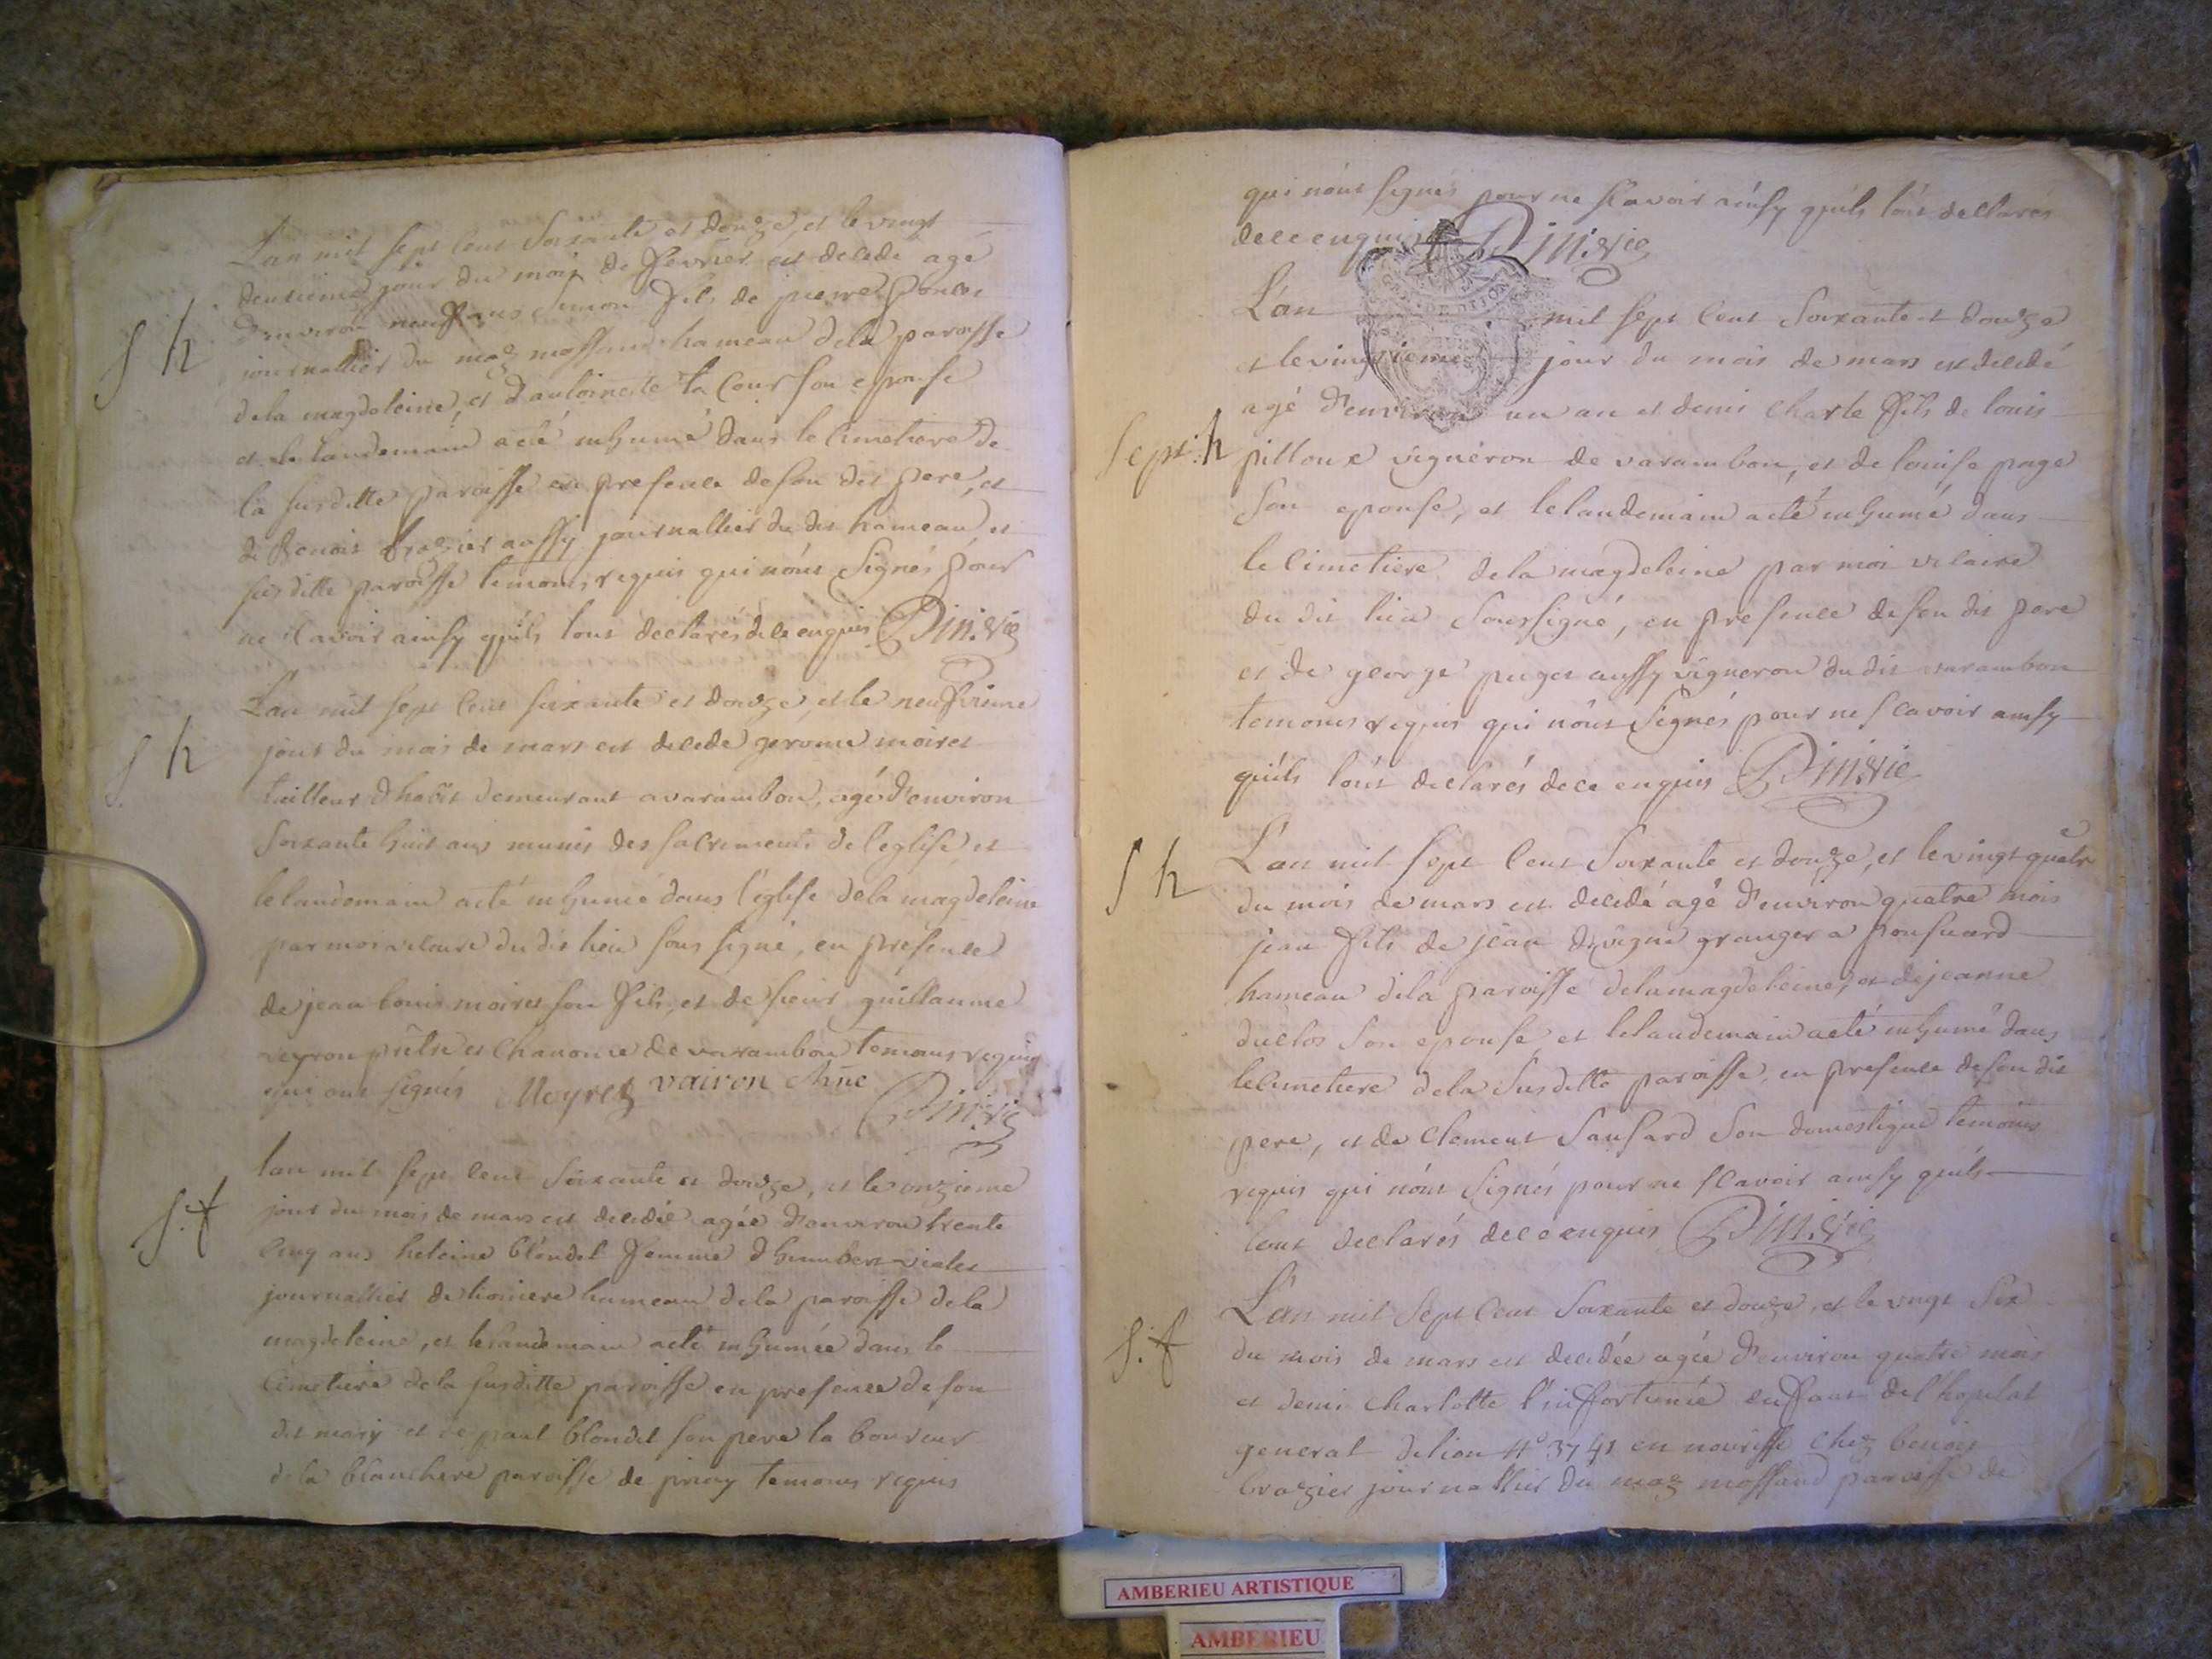 Lan mil sept cent soixante et douze, et le vingt
deuxieme jour du mois de fevrier est decedé agé
d'environ neuf ans simon fils de pierre
journallier du maz moffand hameau dela paroisse
dela magdeleine, et d'antoinette la cour son epouse
et le landemain aeté inhumé dans le cimetiere de
la susditte paroisse en presence de son dit pere, et
de Benois brazier aussy journallier du dit hameau et
susditte paroisse temoins requis qui nónt signés pour
ne scavoir ainsy qu'ils lont declarés de ce enquis Pin. vic
S h
Lan mil sept cent soixante et douze, et le neufvieme
jour du mois de mars est decedé gerome moiret
tailleur d'habit demeurant a varambon, agé d'environ
soixante huit ans munis des sacrements de l'eglise et
le landemain aeté inhumé dans l'eglise dela magdeleine
par moi vicaire du dit lieu sous signé, en presence
de jean louis moiret son fils, et de sieur guillaume
veyron prêtre et chanoine de varambon temoins requis
qui ont signés Meyret vairon chne
Pin. vic
S. h
lan mil sept cent soixante et douze, et le onzieme
jour du mois de mars est decedée agée d'environ trente
cinq ans heleine blondel femme d'humbert violet
journallier de tioniere hameau dela paroisse dela
magdeleine, et le landemain aeté inhumée dans le
cimetiere dela susditte paroisse en presence de son
dit mary et de paul blondel son pere laboureur
dela blanchere paroisse de priay temoins requis
S. f
qui nónt signés pour ne scavoir ainsy qu'ils lónt declarés
de ce enquis Pin. vic
L'an mil sept cent soixante et douze
et le vingtieme jour du mois de mars est decedé
agé d'environ un an et demi charle fils de louis
pilloux vigneron de varambon, et de louise page
son epouse, et le landemain aeté inhumé dans
le cimetiere dela magdeleine par moi vicaire
du dit lieu soussigné, en presence de son dit pere
et de george puget aussy vigneron du dit varambon
temoins requis qui nónt signés pour ne scavoir ainsy
qu'ils lónt declarés de ce enquis Pin. vic
Sept. h
L'an mil sept cent soixante et douze, et le vingt quatre
du mois de mars est decedé agé d'environ quatre mois
jean fils de jean devigne granger a ponsuard
hameau dela paroisse dela magdeleine, et de jeanne
duclos son epouse et le landemain aeté inhumé dans
le cimetiere dela susditte paroisse, en presence de son dit
pere, et de clement sansard son domestique temoins
requis qui nónt signés pour ne scavoir ainsy qu'ils
lont declarés de ce enquis Pin. vic
S h
L'an mil sept cent soixante et douze, et le vingt six
du mois de mars est decedée agée d'environ quatre mois
et demi charlotte l'infortunée enfant de l'hopital
general de lion n° 3741 en nourisse chez benois
brazier journallier du maz moffand paroisse de
S. f
AMBERIEU ARTISTIQUE
AMBERIEU